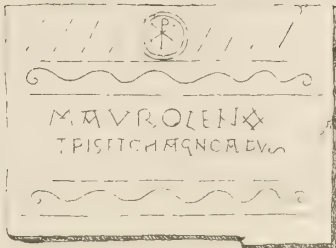 MAVROLENA
TPISFTCHAGNCAEVS